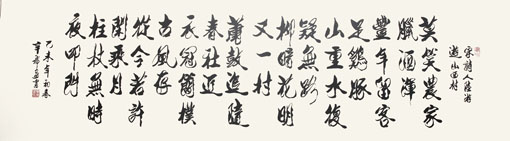 宋诗人陆游
游山西村
莫笑農家
臘酒渾
豐年留客
足鷄豚
山重水復
疑無路
柳暗花明
又一村
蕭鼓追隨
春社近
衣冠簡樸
古風存
從今若許
閑乘月
柱杖無時
夜叩門
己未年初春